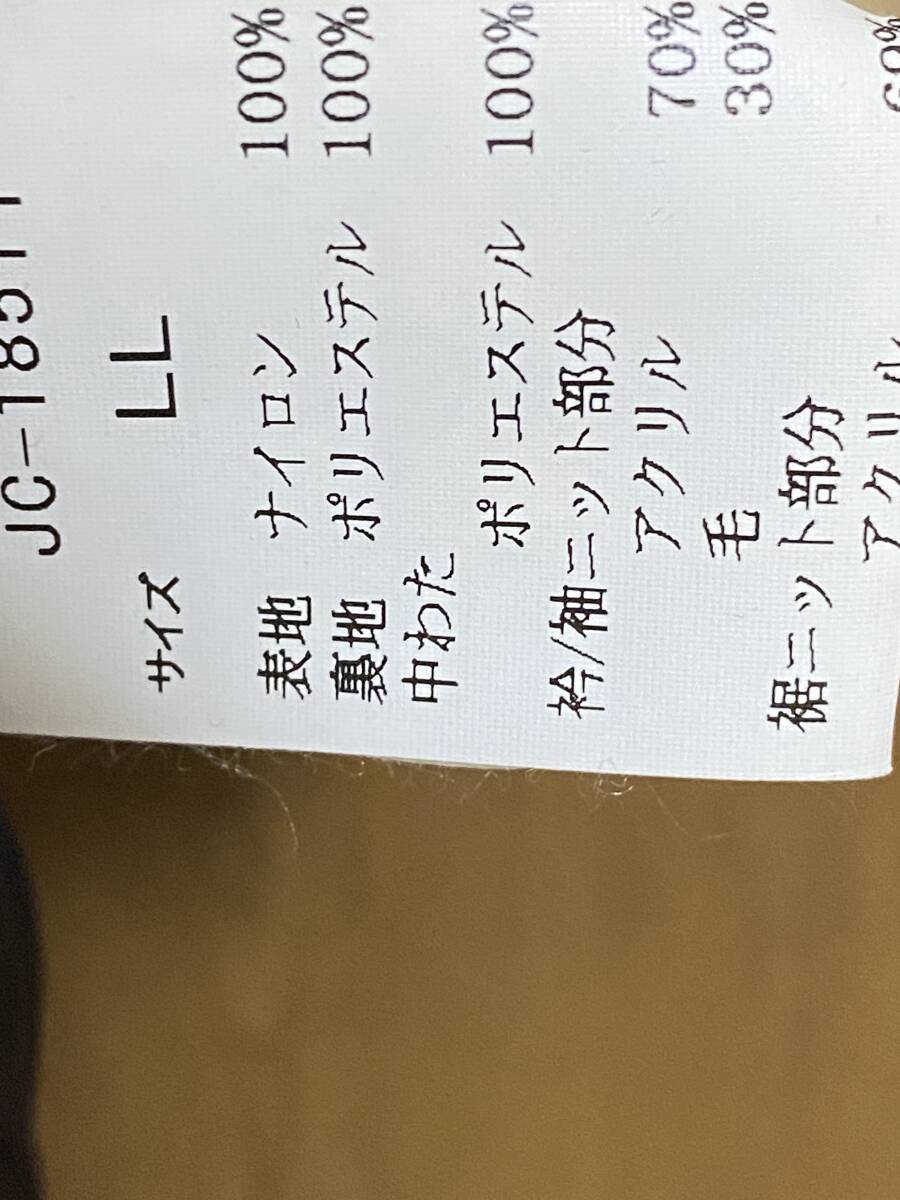 JC-18511
サイズ LL
表地 ナイロン 100%
裏地 ポリエステル 100%
中わた
ポリエステル 100%
衿/袖ニット部分
アクリル 70%
毛 30%
裾ニット部分
アクリル